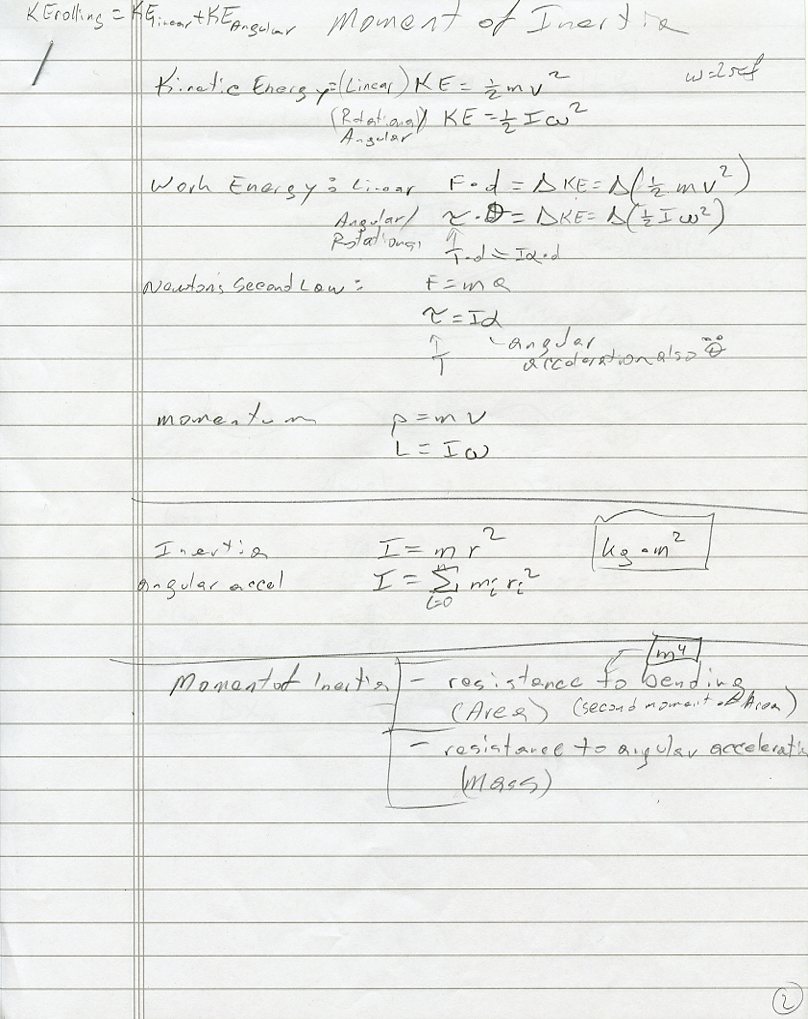 KE rolling = KE Linear + KE Angular
Moment of Inertia
Kinetic Energy = (Linear) KE = ½ m v²
ω = 2πf
(Rotational/ Angular) KE = ½ I ω²
Work Energy: Linear F·d = Δ KE = Δ(½ m v²)
Angular/ Rotational τ·θ = ΔKE = Δ(½ I ω²)
↑
T·d = Iα·d
Newton's Second Law: F = m a
τ = Iα
↑ angular
T acceleration also θ̈
momentum p = m v
L = I ω
Inertia I = m r²
kg·m²
angular accel I = n Σ i=0 mᵢ rᵢ²
m⁴
Moment of Inertia - resistance to bending
(Area) (second moment of Area)
- resistance to angular accelerati
(Mass)
2